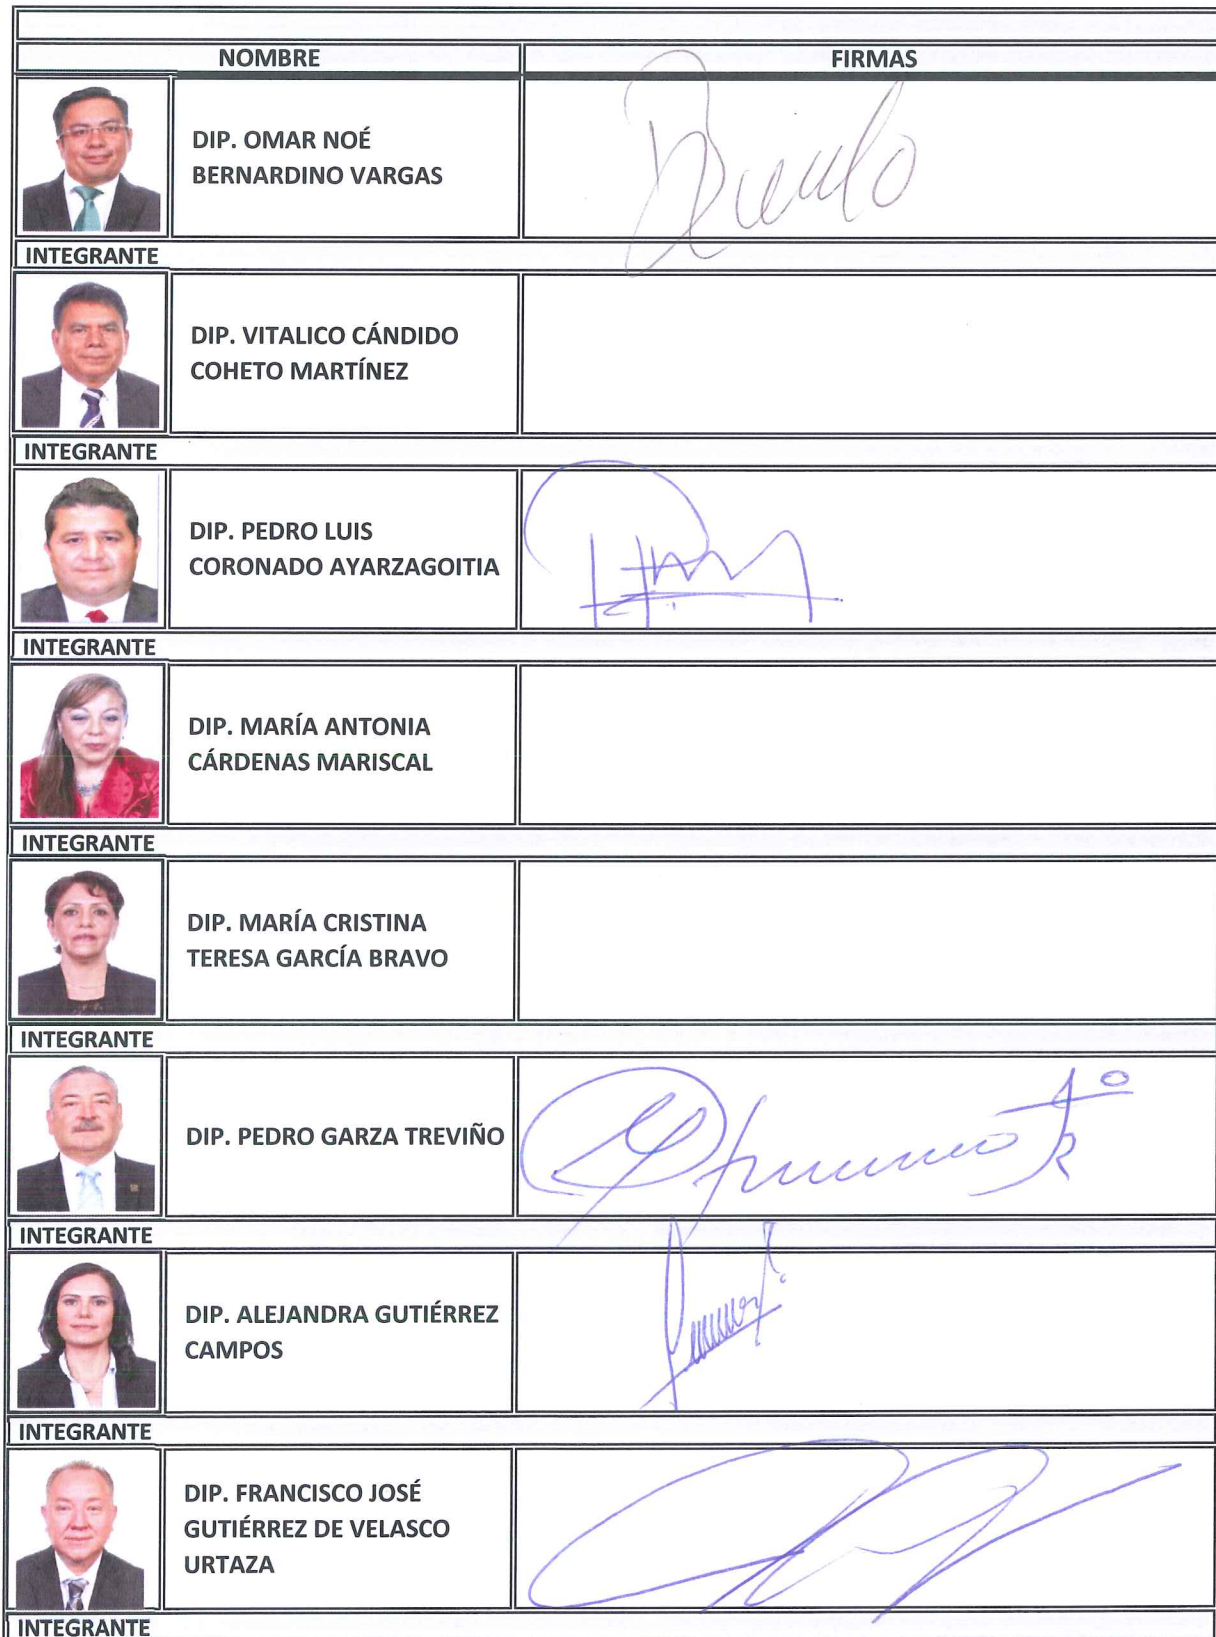 NOMBRE FIRMAS
DIP. OMAR NOÉ
BERNARDINO VARGAS
INTEGRANTE
DIP. VITALICO CÁNDIDO
COHETO MARTÍNEZ
INTEGRANTE
DIP. PEDRO LUIS
CORONADO AYARZAGOITIA
INTEGRANTE
DIP. MARÍA ANTONIA
CÁRDENAS MARISCAL
INTEGRANTE
DIP. MARÍA CRISTINA
TERESA GARCÍA BRAVO
INTEGRANTE
DIP. PEDRO GARZA TREVIÑO
INTEGRANTE
DIP. ALEJANDRA GUTIÉRREZ
CAMPOS
INTEGRANTE
DIP. FRANCISCO JOSÉ
GUTIÉRREZ DE VELASCO
URTAZA
INTEGRANTE